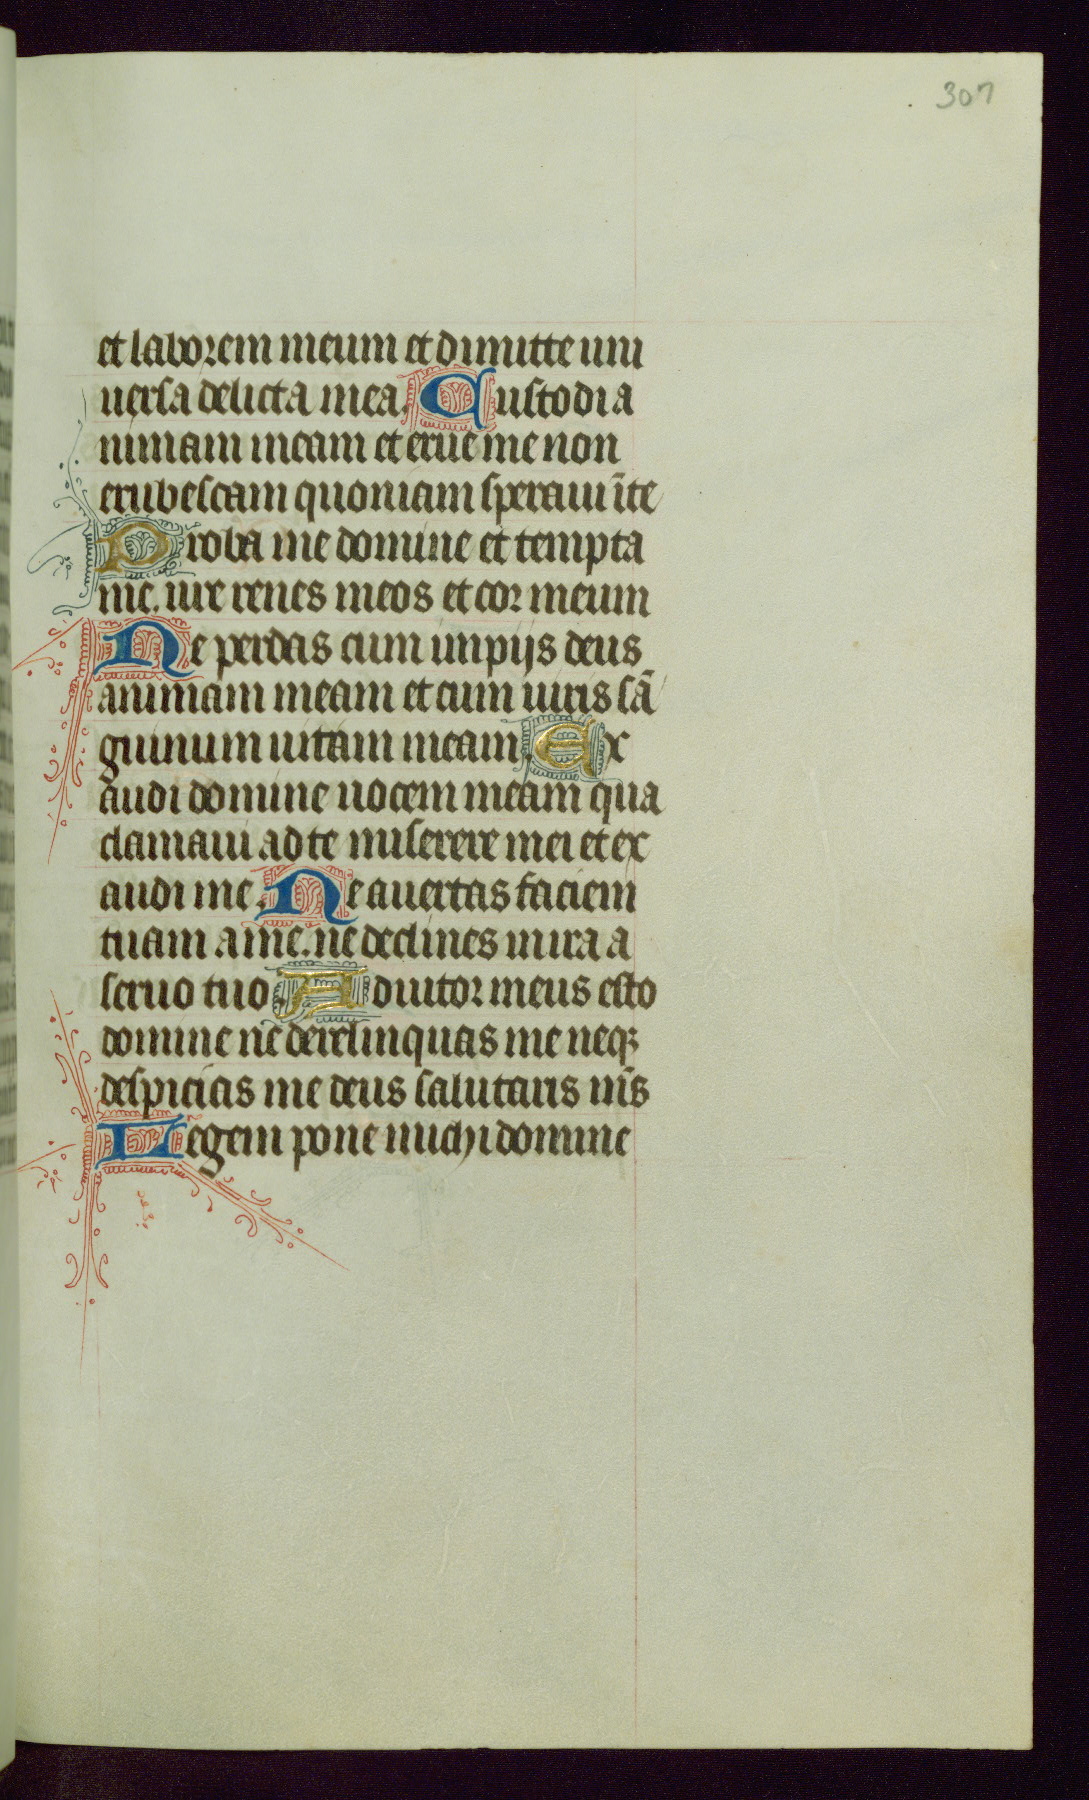 307
et laborem meum et dimitte uni
uersa delicta mea. Custodi a
nimam meam et erue me non
erubescam quoniam speraui ĩ te
Proba me domine et tempta
me. ure renes meos et cor meum
Ne perdas cum impijs deus
animam meam et cum uiris sã
guinum uitam meam. Ex
audi domine uocem meam qua
clamaui ad te miserere mei et ex
audi me. Ne auertas faciem
tuam a me. ne declines in ira a
seruo tuo. Adiutor meus esto
domine ne derelinquas me neqꝫ
despicias me deus salutaris m̃s
Legem pone michi domine